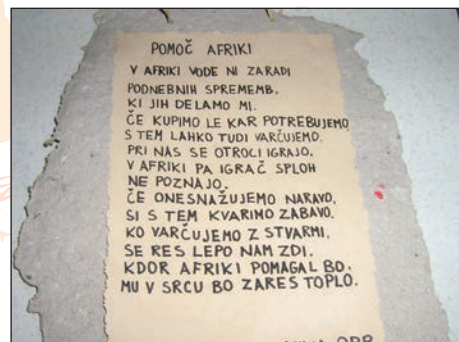 POMOČ AFRIKI
V AFRIKI VODE NI ZARADI
PODNEBNIH SPREMEMB,
KI JIH DELAMO MI.
ČE KUPIMO LE KAR POTREBUJEMO
S TEM LAHKO TUDI VARČUJEMO.
PRI NAS SE OTROCI IGRAJO,
V AFRIKI PA IGRAČ SPLOH
NE POZNAJO.
ČE ONESNAŽUJEMO NARAVO,
SI S TEM KVARIMO ZABAVO.
KO VARČUJEMO Z STVARMI,
SE RES LEPO NAM ZDI.
KDOR AFRIKI POMAGAL BO,
MU V SRCU BO ZARES TOPLO.